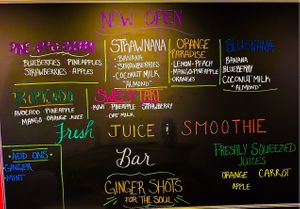 NOW OPEN
PINE-APPLE-BERRY
BLUEBERRIES PINEAPPLES
STRAWBERRIES APPLES
STRAWNANA
-BANANA
-STRAWBERRIES
-COCONUT MILK
"ALMOND"
ORANGE
PARADISE
-LEMON-PEACH
-MANGO-PINEAPPLE
-ORANGES
BLUENANA
BANANA
BLUEBERRY
COCONUT MILK
"ALMOND"
TROPICADO
AVOCADO PINEAPPLE
MANGO-ORANGE JUICE
SWEET TART
-KIWI PINEAPPLE STRAWBERRY
-OAT MILK
Fresh JUICE & SMOOTHIE
Bar
ADD ONS
GINGER
MINT
GINGER SHOTS
FOR THE SOUL
FRESHLY SQUEEZED
JUICES
ORANGE CARROT
APPLE